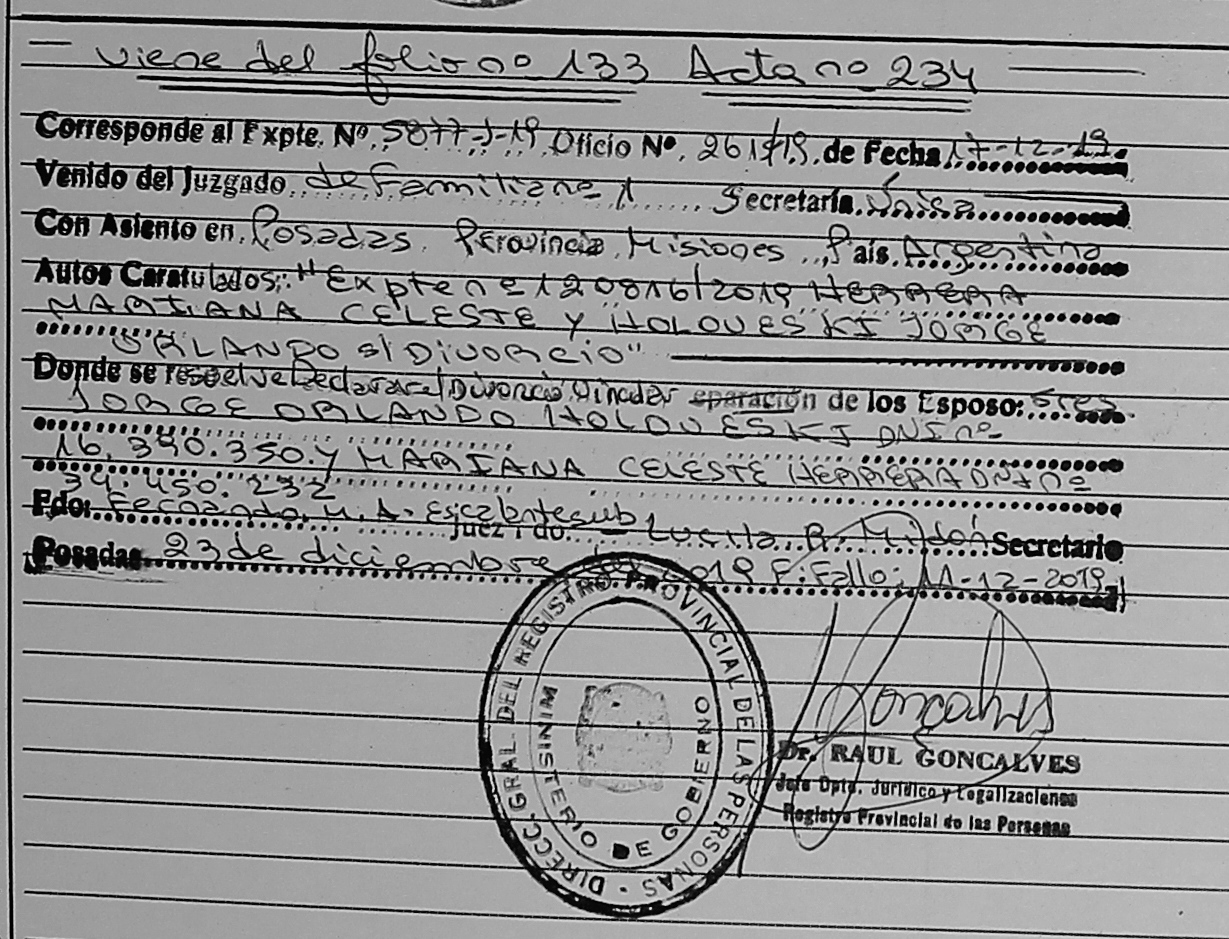 Viene del folio nº 133 Acta nº 234
Corresponde al Expte. Nº 5877-J-19 Oficio Nº. 261/19. de Fecha 17-12-19.
Venido del Juzgado de Familia nº 1 Secretaría Única
Con Asiento en Posadas. Provincia Misiones País Argentina
Autos Caratulados: "Expte nº 120816/2019 HERRERA
MARIANA CELESTE Y HOLOVESKI JORGE
ORLANDO s/ DIVORCIO"
Donde se resuelve Declarar el Divorcio Vincular eparación de los Esposo: Sres
JORGE ORLANDO HOLOVESKI DNI nº
16.390.350. y MARIANA CELESTE HERRERA DNI nº
34.450.232
Fdo: Fernando M. A. Escalante sub Juez Fdo. Lucila R. Midón Secretario
Posadas 23 de diciembre de 2019 F. Fallo: 11-12-2019
DIRECC. GRAL. DEL REGISTRO PROVINCIAL DE LAS PERSONAS
MINISTERIO DE GOBIERNO
Dr. RAUL GONCALVES
Jefe Dpto. Jurídico y Legalizaciones
Registro Provincial de las Personas